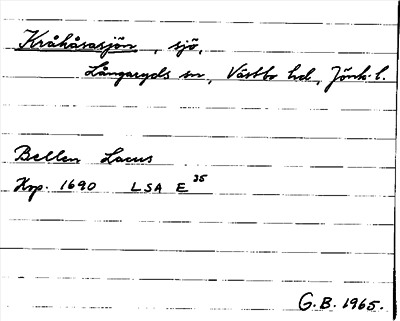 Kråhåsasjön, sjö,
Långaryds sn, Västbo hd, Jönk. l.
Bellen Lacus
Krp. 1690 LSA E 35
G.B. 1965.